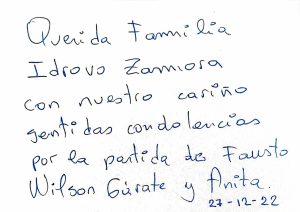 Querida Familia
Idrovo Zamora
con nuestro cariño
sentidas condolencias
por la partida de Fausto
Wilson Gúrate y Anita.
27-12-22